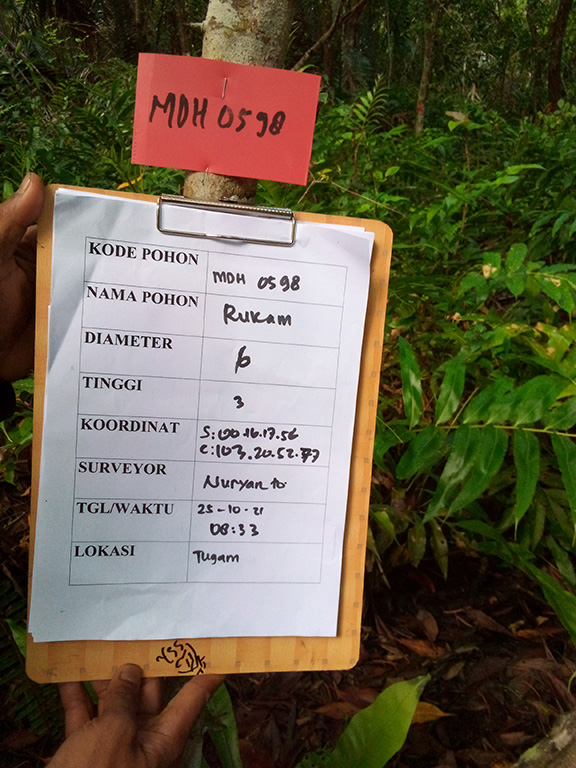 MDH 0598
KODE POHON MDH 0598
NAMA POHON Rukam
DIAMETER 6
TINGGI 3
KOORDINAT S:00.16.17.56
E:103.20.52.77
SURVEYOR Nuryanto
TGL/WAKTU 25-10-21
08:33
LOKASI Tugam